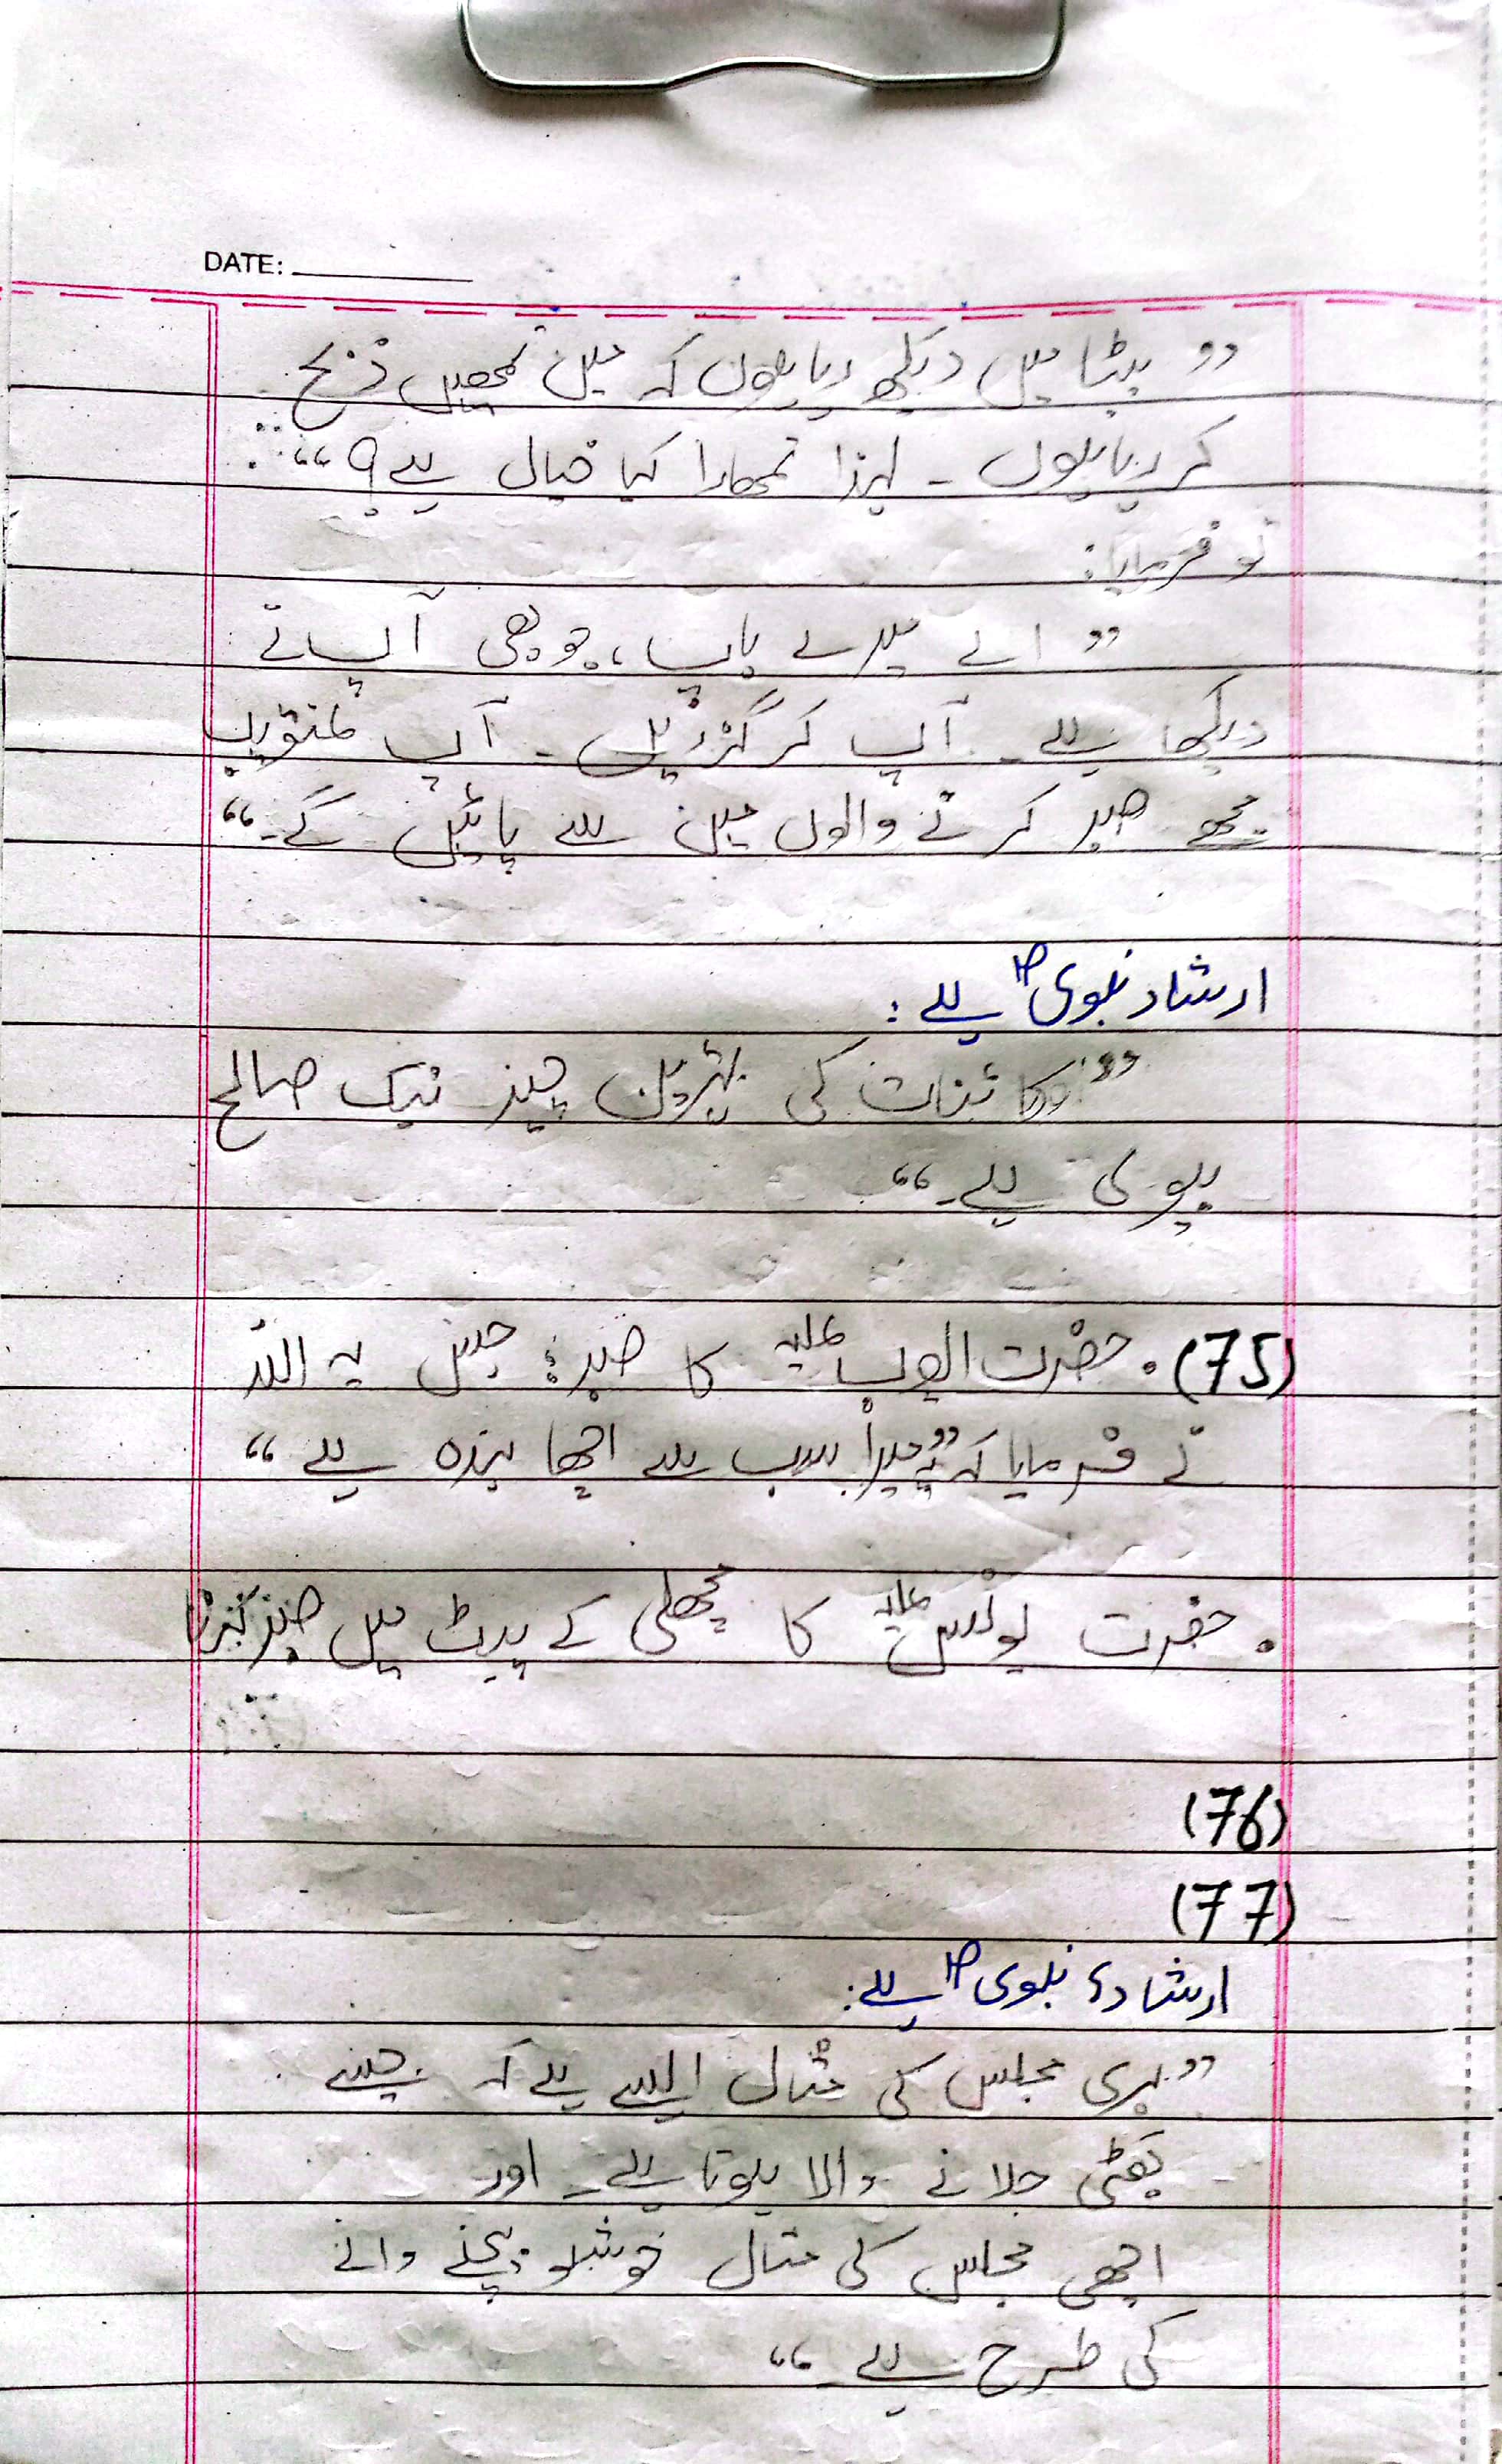 DATE:
”بیٹا میں دیکھ رہا ہوں کہ میں تمھیں ذبح
کر رہا ہوں ۔ لہذا تمھارا کیا خیال ہے؟“
تو فرمایا:
”اے میرے باپ، جو بھی آپ نے
دیکھا ہے ۔ آپ کر گزریں ۔ آپ عنقریب
مجھے صبر کرنے والوں میں سے پائیں گے۔“
ارشاد نبویؐ ہے :
”کائنات کی بہترین چیز نیک صالح
بیوی ہے۔“
(75) . حضرت ایوب علیہ کا صبر؛ جس پہ اللہ
نے فرمایا کہ ”یہ میرا سب سے اچھا بندہ ہے“
. حضرت یونس علیہ کا مچھلی کے پیٹ میں صبر کرنا
(76)
(77)
ارشادِ نبویؐ ہے:
”بری مجلس کی مثال ایسے ہے کہ جیسے
بھٹی جلانے والا ہوتا ہے۔ اور
اچھی مجلس کی مثال خوشبو بیچنے والے
کی طرح ہے۔“